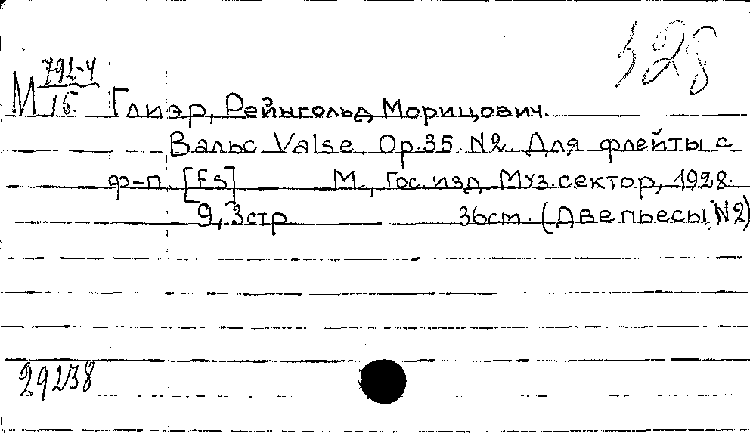 328
М 792-4/15 Глиэр, Рейнгольд Морицович.
Вальс. Valse. Op.35. N2. Для флейты с
ф-п. [Es] М., Гос. изд. Муз. сектор, 1928.
9, 3 стр. 36 cm. (Две пьесы, N2)
29238